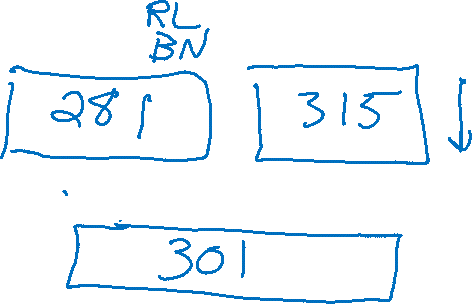 RL
BN
281 315
301